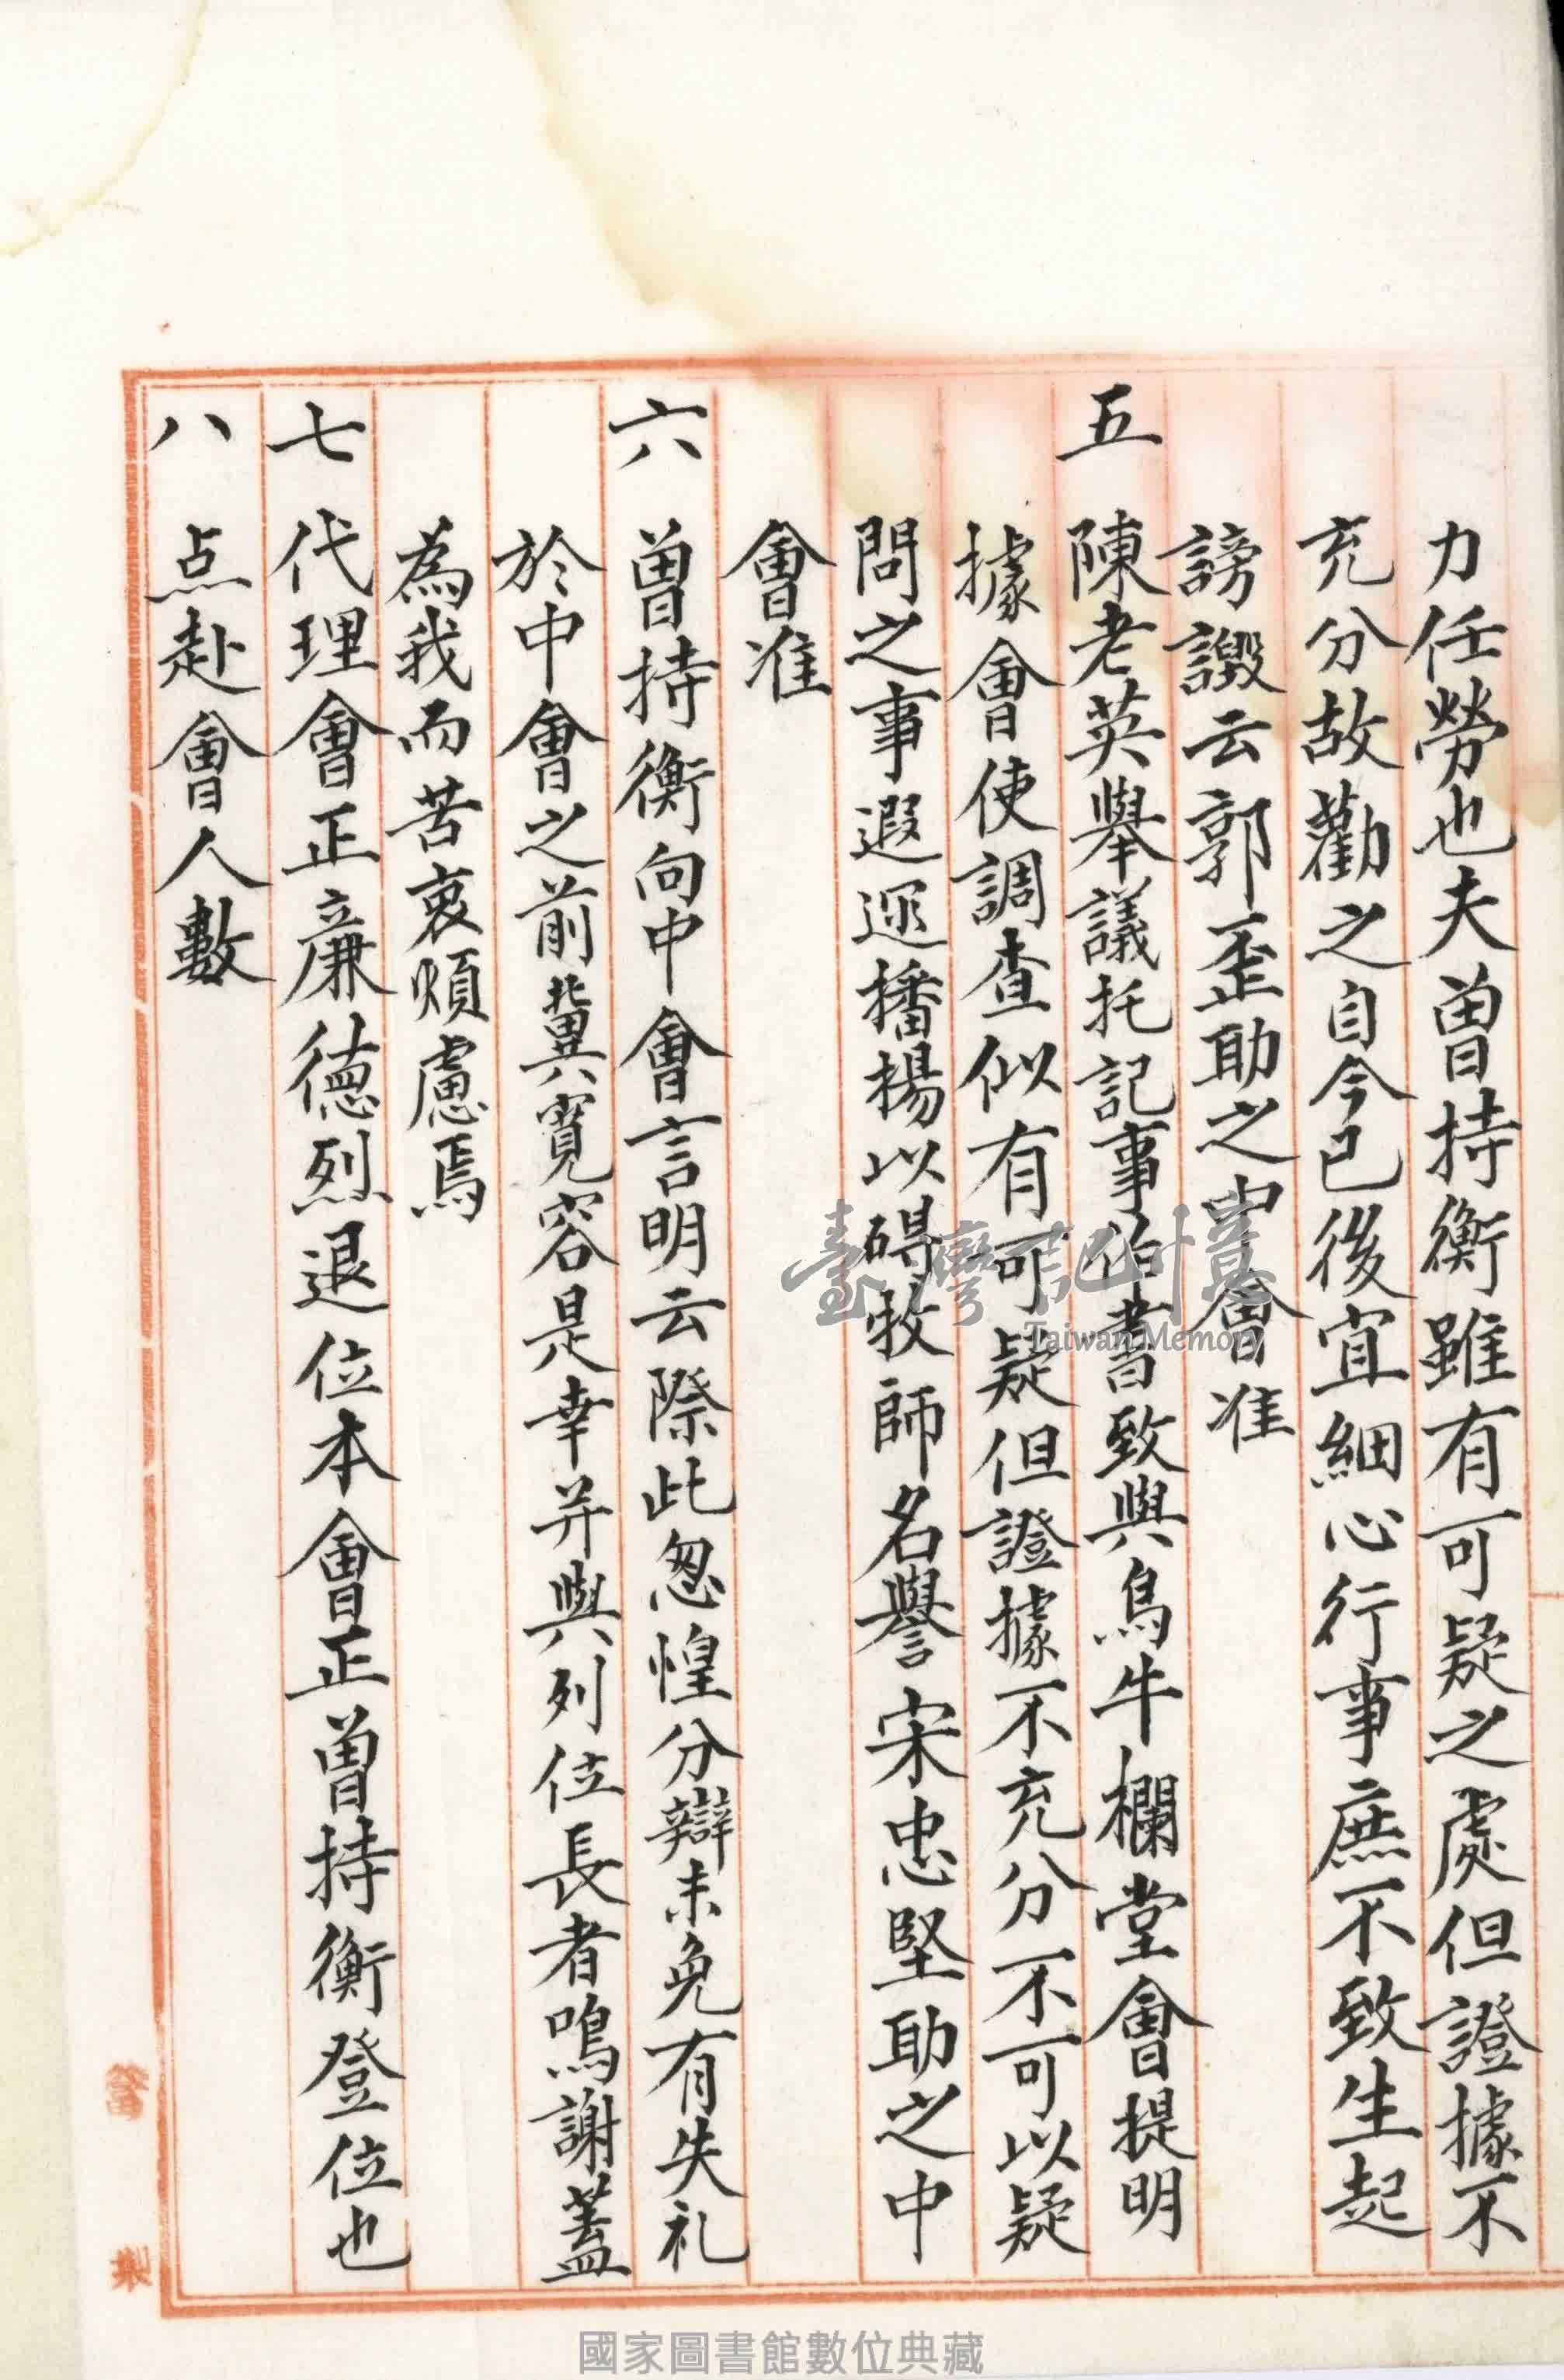 力任勞也夫曾持衡雖有可疑之處但證據不
充分故勸之自今已後宜細心行事庶不致生起
謗譭云郭歪助之中會准
五 陳老英舉議托記事伯書致與烏牛欄堂會提明
據會使調查似有可疑但證據不充分不可以疑
問之事遐邇播揚以碍牧師名譽宋忠堅助之中
會准
六 曾持衡向中會言明云際此怱惶分辯未免有失礼
於中會之前冀寬容是幸并與列位長者鳴謝蓋
為我而苦衷煩慮焉
七 代理會正廉德烈退位本會正曾持衡登位也
八 点赴會人數
臺灣記憶
Taiwan Memory
製
國家圖書館數位典藏